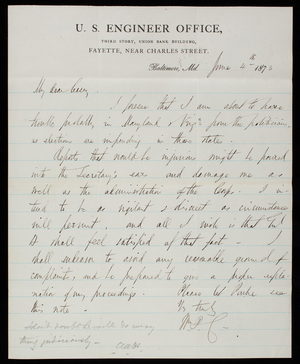 U. S. ENGINEER OFFICE,
THIRD STORY, UNION BANK BUILDING,
FAYETTE, NEAR CHARLES STREET.
Baltimore, Md. June 4th 1873
My dear Casey
I foresee that I am about to have
trouble probably in Maryland & Virg'a from the politicians,
as elections are impending in those states.
Reports that would be injurious might be poured
into the Secretary's ear and damage me as
well as the administration of the Corps. I in-
tend to be as vigilant & discreet as circumstances
will permit, and all I wish is that
shall feel satisfied of that fact - I
shall endeavor to avoid any reasonable ground of
complaint, and be prepared to give a proper expla-
nation of my proceedings. Please let Parke see
this note -
Yrs truly
W P C